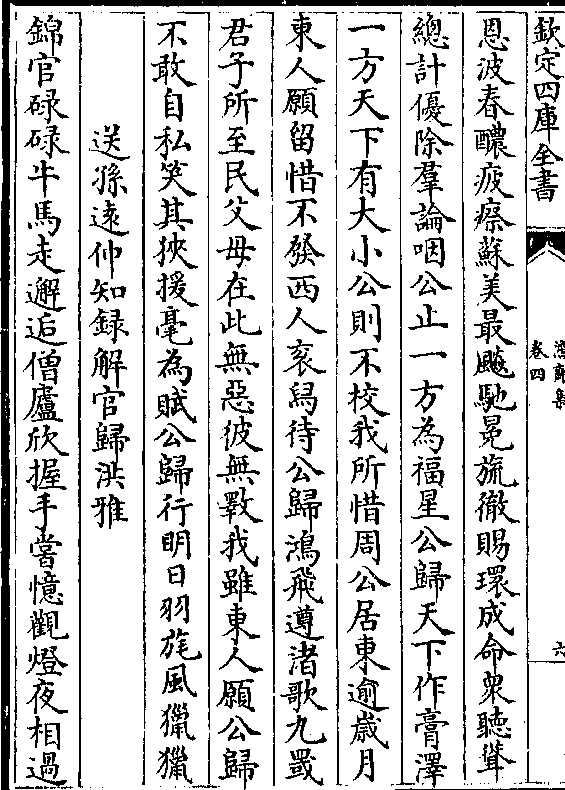 欽定四庫全書
卷四
六
恩波春醲疲瘵蘇美最颷馳冕旒徹賜環成命衆聽聳
總計優除羣論咽公止一方為福星公歸天下作膏澤
一方天下有大小公則不校我所惜周公居東逾歲月
東人願留惜不發西人衮舄待公歸鴻飛遵渚歌九罭
君子所至民父母在此無惡彼無斁我雖東人願公歸
不敢自私笑其狹援毫為賦公歸行明日羽旄風獵獵
送孫遠仲知録解官歸洪雅
錦官碌碌牛馬走邂逅僧廬欣握手嘗憶觀燈夜相過